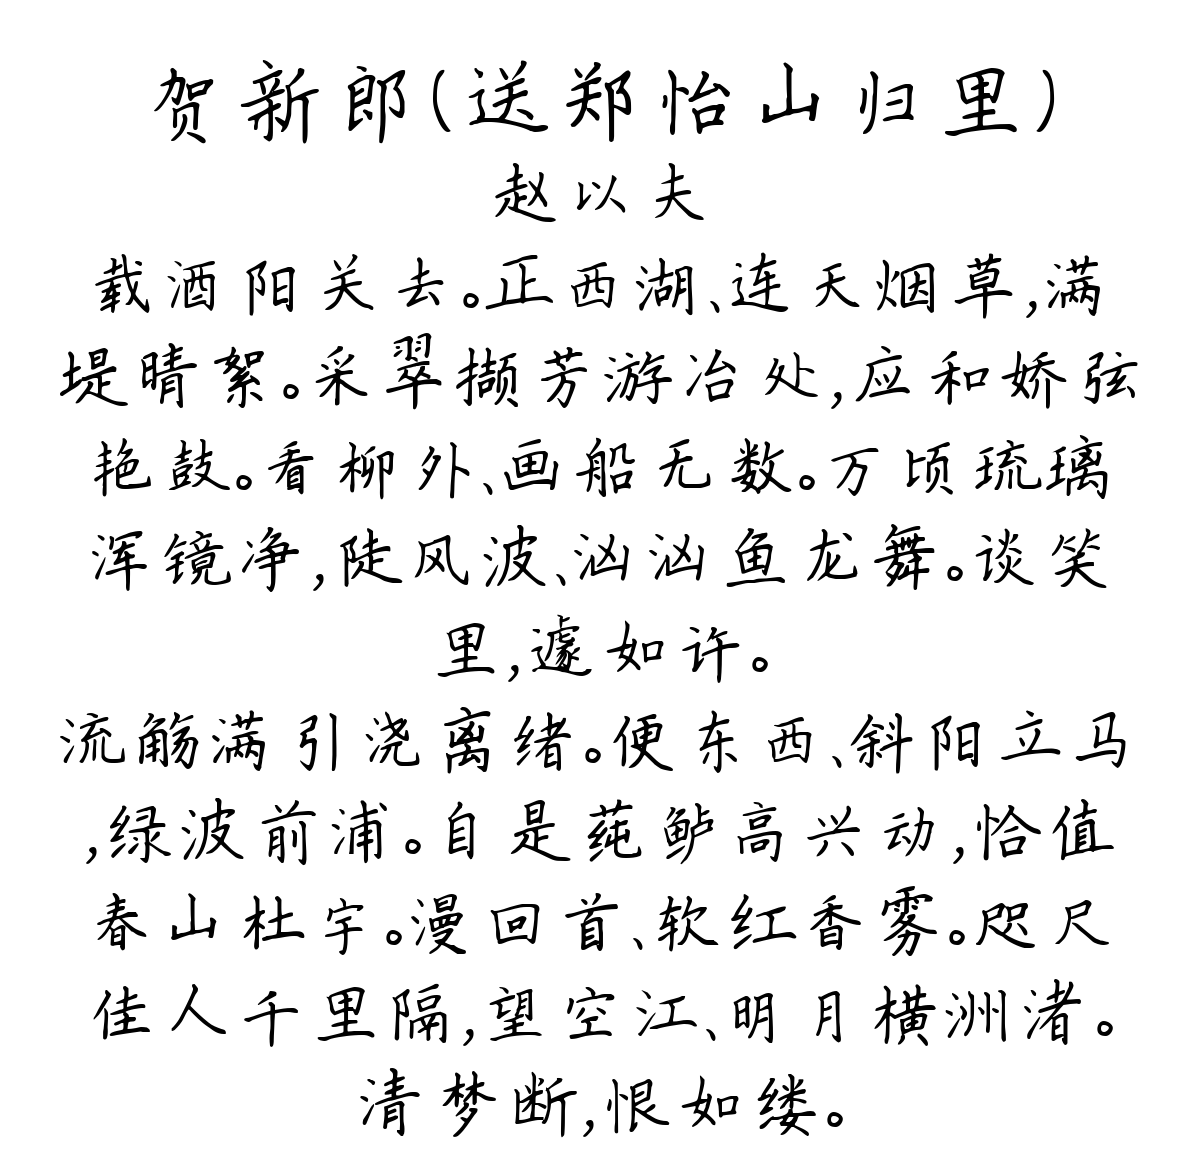 贺新郎(送郑怡山归里)
赵以夫
载酒阳关去。正西湖、连天烟草,满
堤晴絮。采翠撷芳游冶处,应和娇弦
艳鼓。看柳外、画船无数。万顷琉璃
浑镜净,陡风波、汹汹鱼龙舞。谈笑
里,遽如许。
流觞满引浇离绪。便东西、斜阳立马
,绿波前浦。自是莼鲈高兴动,恰值
春山杜宇。漫回首、软红香雾。咫尺
佳人千里隔,望空江、明月横洲渚。
清梦断,恨如缕。